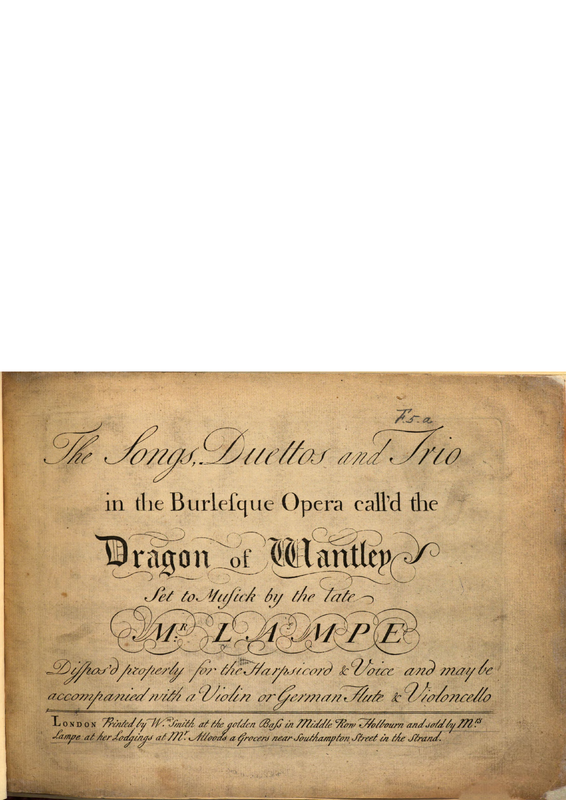 F.5.a
The Songs, Duettos and Trio
in the Burleſque Opera call'd the
Dragon of Wantley
Set to Muſick by the late
Mr. LAMPE
Diſpos'd properly for the Harpsicord & Voice and may be
accompanied with a Violin or German Flute & Violoncello
LONDON Printed by Wm. Smith at the golden Baſs in Middle Row Holbourn and sold by Mrs.
Lampe at her Lodgings at Mr. Allwoods a Grocers near Southampton Street in the Strand.